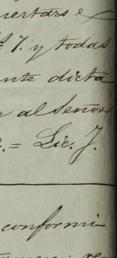 nertars e
7. y todas
ente dicta
al Señor
= Lic. J.
conformi